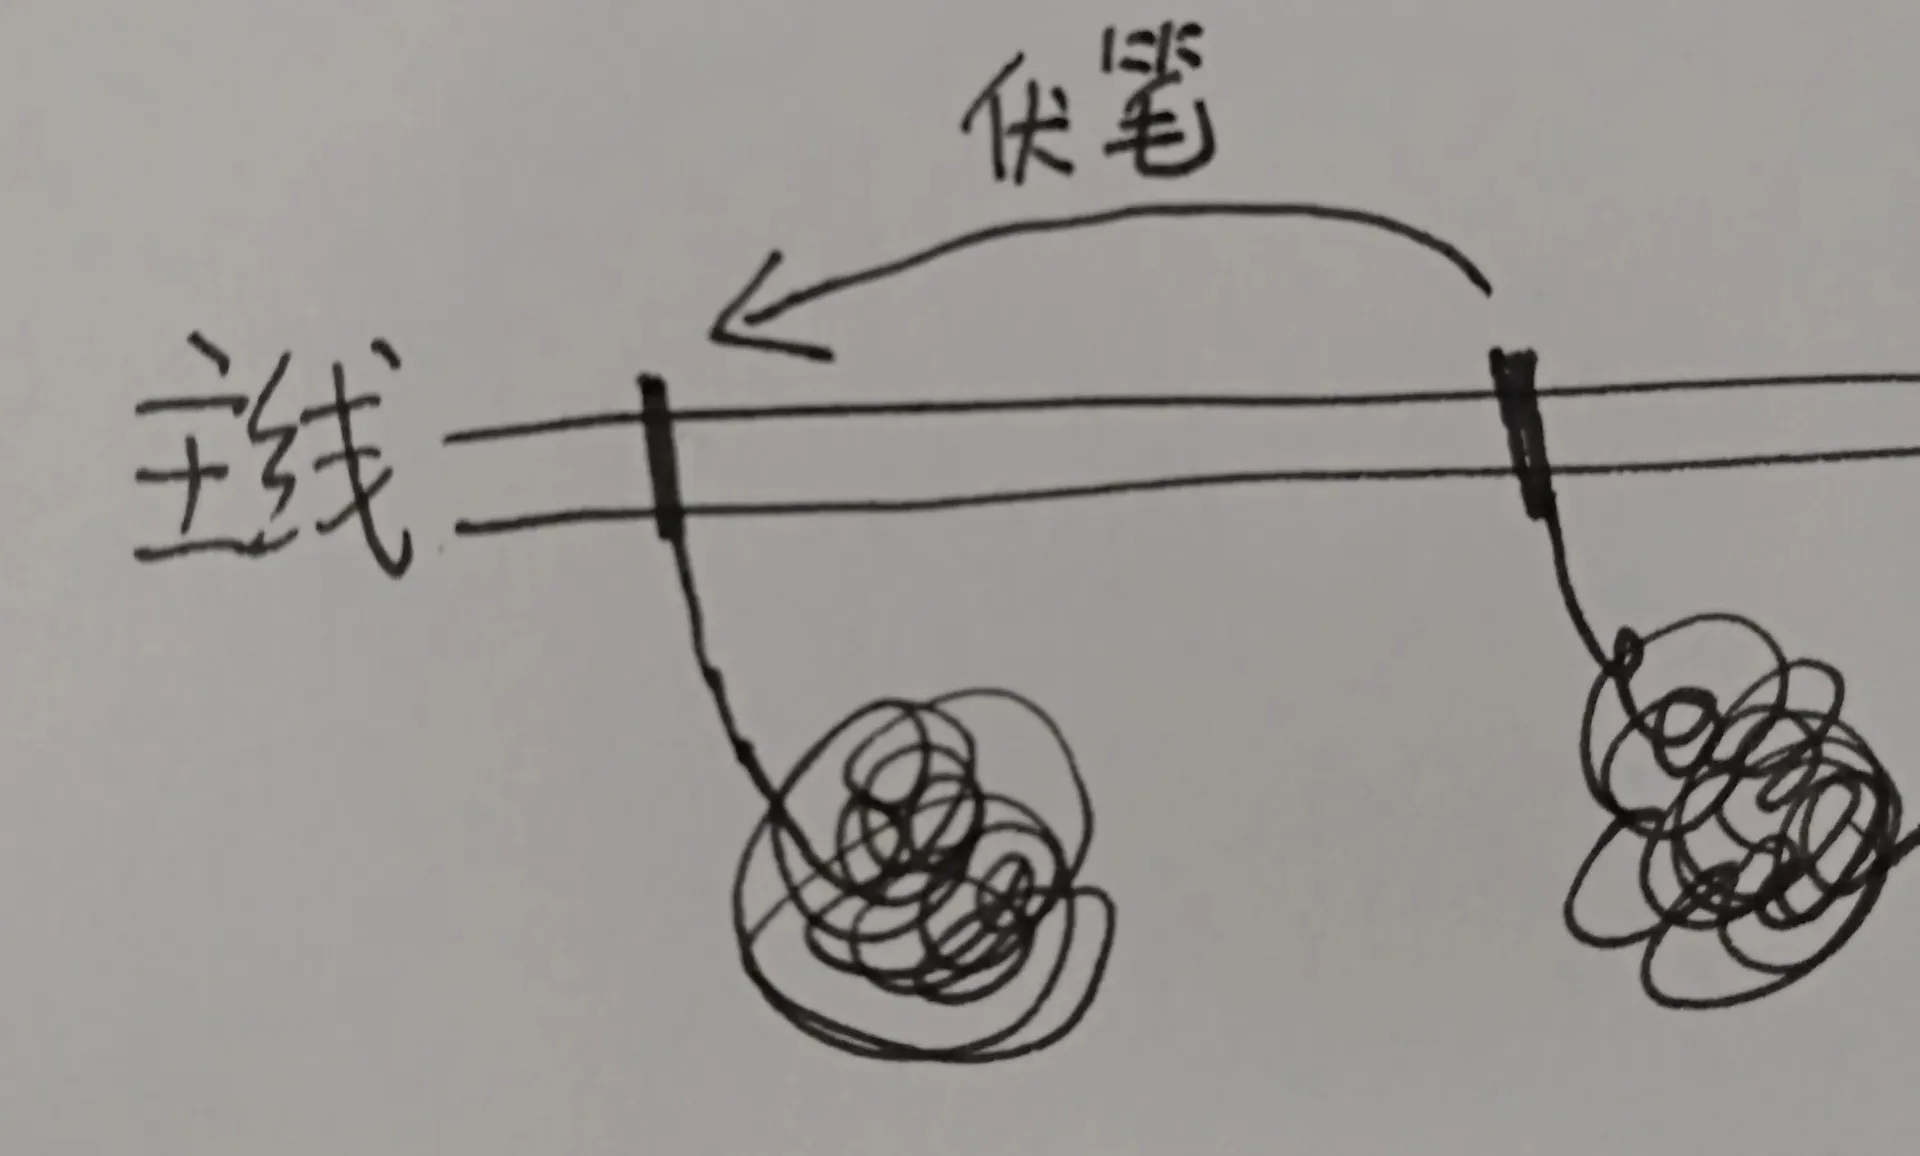 伏笔
主线